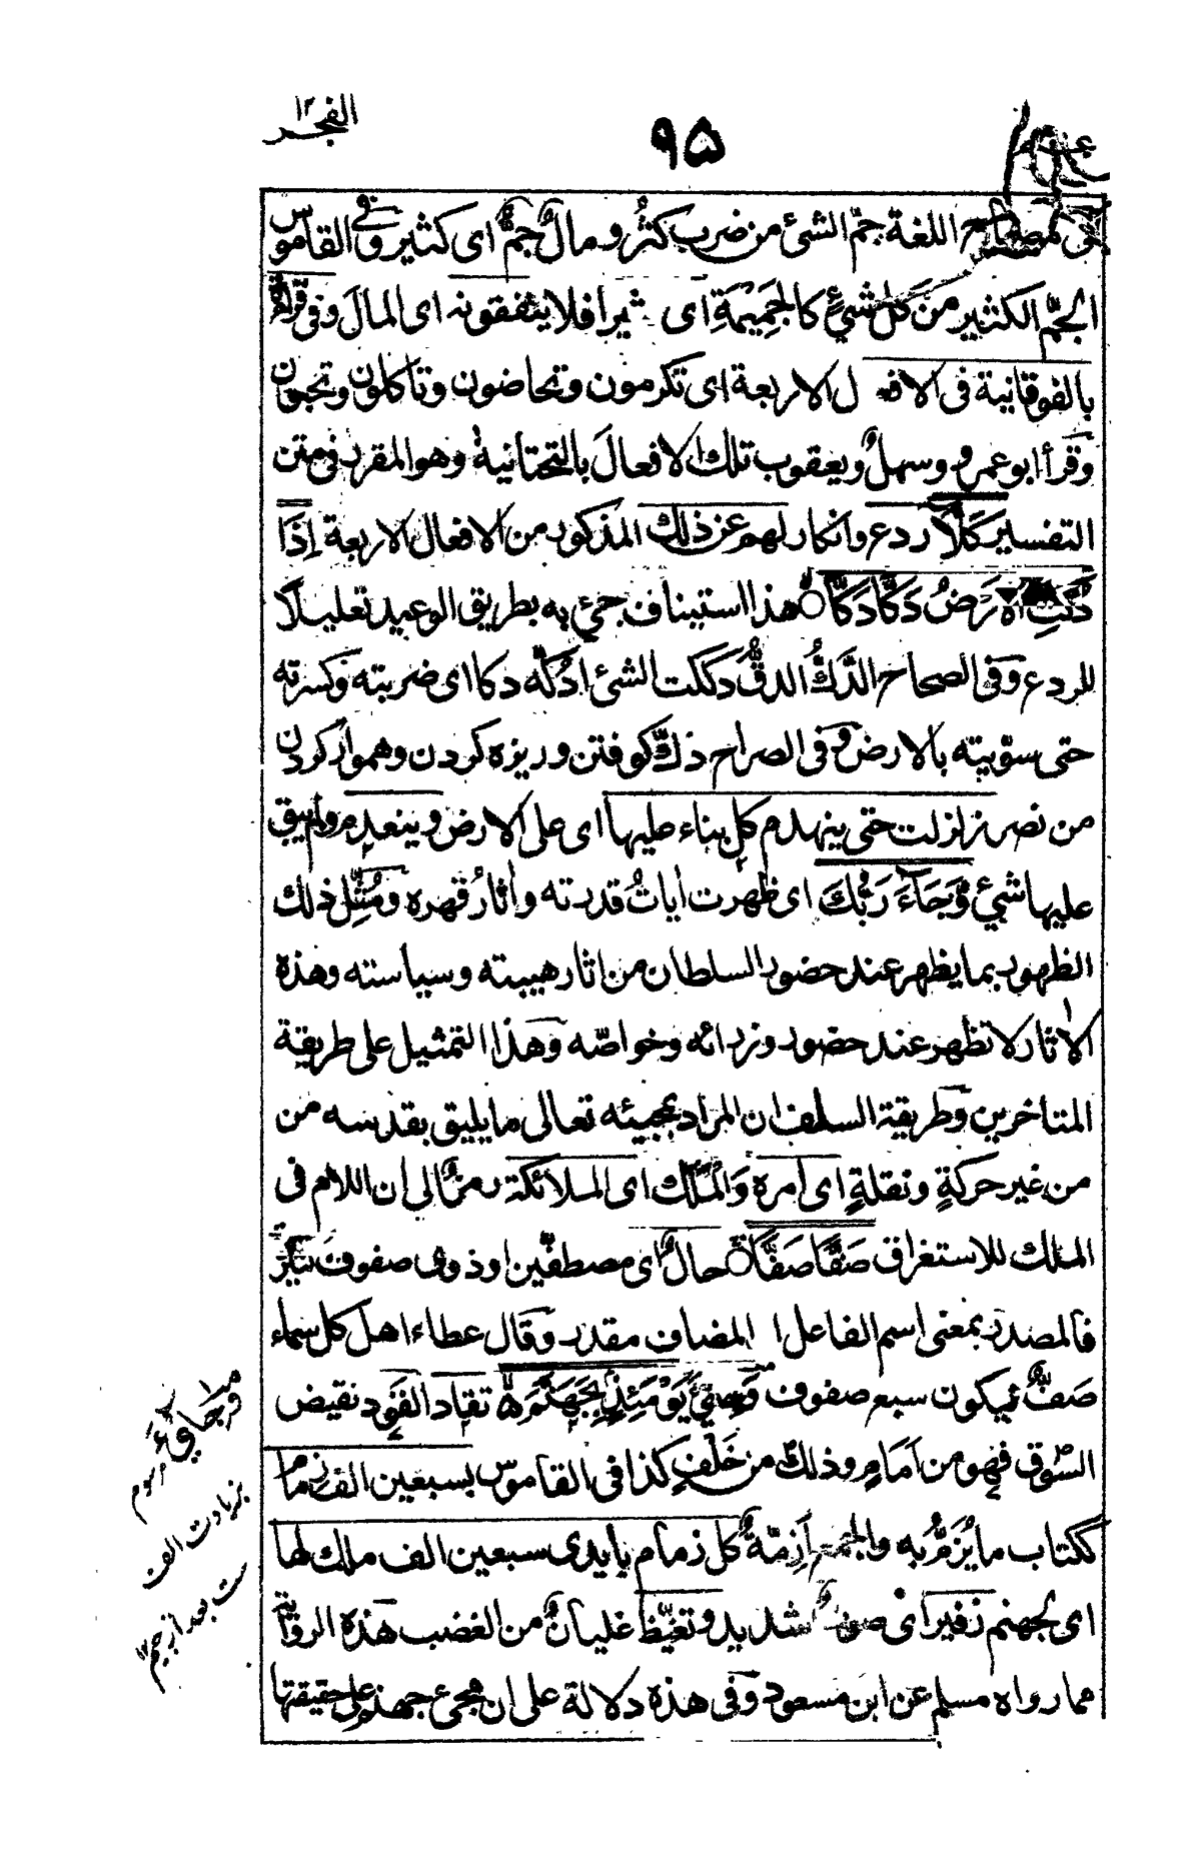 الفجر ١٢
٩٥
عم
اللغة جمّ الشئ من ضرب كثُر ومالٌ جمٌّ اى كثير وفى القاموس
الجمّ الكثير من كل شئٍ كالجَمِيمَةِ اى ثيرا فلا ينفقونه اى المال وفى قراءة
بالفوقانية فى الاف ل الاربعة اى تكرمون وتحاضون وتأكلون وتحبون
وقرأ ابو عمرو وسهلٌ ويعقوب تلك الافعال بالتحتانية وهو المقرر فى متن
التفسير كَلَّا ردع وانكار لهم عن ذلك المذكور من الافعال الاربعة إِذَا
دُكَّتِ الْاَرْضُ دَكًّا دَكًّا هذا استيناف جئ به بطريق الوعيد تعليلا
للردع وفى الصحاح الدَّكُّ الدقُّ دككت الشئ ادُكُّه دكا اى ضربته وكسرته
حتى سوّيته بالارض وفى الصراح دكّ كوفتن وريزه كردن وهموار كردن
من نصر زلزلت حتى ينهدم كل بناء عليها اى على الارض وينعدم ولم يبق
عليها شئ وَّجَآءَ رَبُّكَ اى ظهرت ايات قدرته واثار قهره ومُثِّل ذلك
الظهور بما يظهر عند حضور السلطان من اثار هيبته وسياسته وهذه
الاثار لا تظهر عند حضور وزرائه وخواصّه وهذا التمثيل على طريقة
المتاخرين وطريقة السلف ان المراد بمجيئه تعالى ما يليق بقدسه من
من غير حركةٍ ونقلةٍ اى امره وَالْمَلَكُ اى الملائكة رمزٌ الى ان اللام فى
الملك للاستغراق صَفًّا صَفًّا حالٌ اى مصطفّين او ذوى صفوف كثيرة
فالمصدر بمعنى اسم الفاعل ا المضاف مقدر وقال عطاء اهل كل سماء
صَفٌّ فيكون سبع صفوف وَجِايْٓءَ يَوْمَئِذٍۢ بِجَهَنَّمَ تقاد القَوْد نقيض
السَّوق فهو من اَمَامٍ وذلك من خَلْفٍ كذا فى القاموس بسبعين الف زمام
ككتاب ما يُزَمُّ به والجمع اَزِمّةٌ كل زمام بايدى سبعين الف ملك لها
اى لجهنم زفير اى صوت شديد وتغيّظ غليانٌ من الغضب هذه الرواية
مما رواه مسلم عن ابن مسعود وفى هذه دلالة على ان مجئ جهنم على حقيقتها
مرسوم
بزيادت الف
ست بعد از جيم ١٢